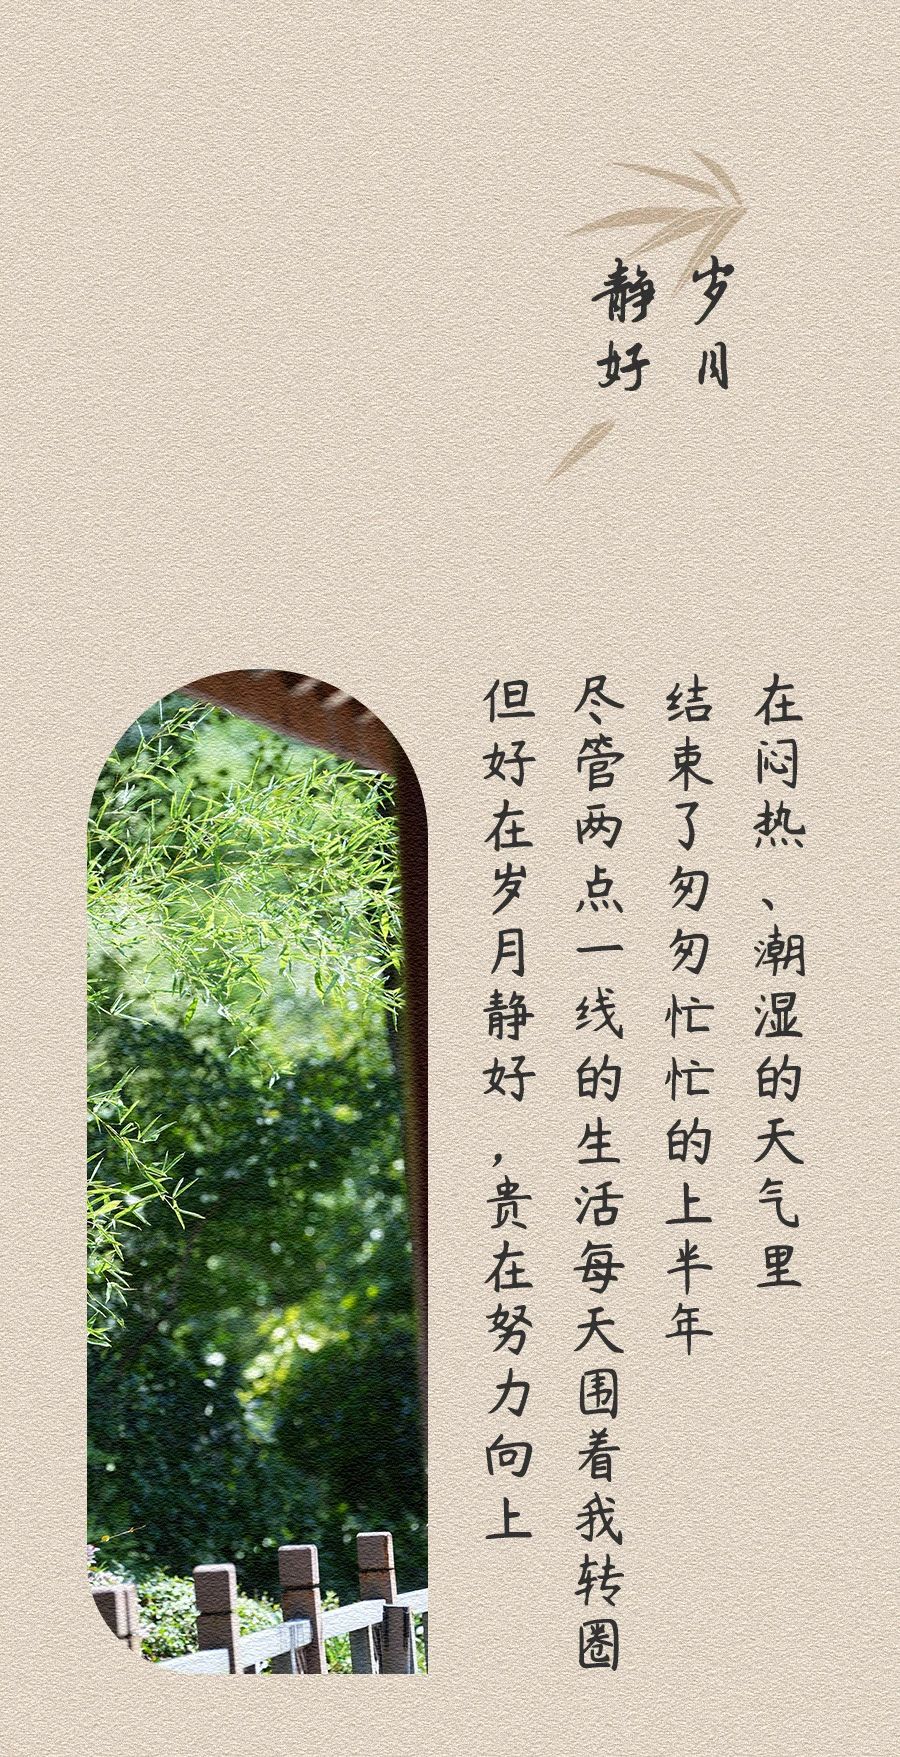 岁月
静好
在闷热、潮湿的天气里
结束了匆匆忙忙的上半年
尽管两点一线的生活每天围着我转圈
但好在岁月静好，贵在努力向上